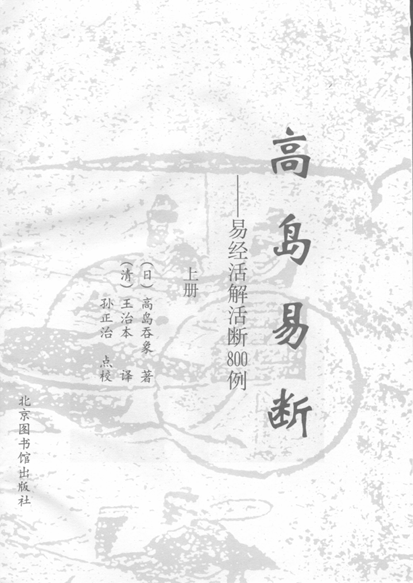 高岛易断
——易经活解活断800例
上册
（日）高岛吞象 著
（清）王治本 译
孙正治 点校
北京图书馆出版社